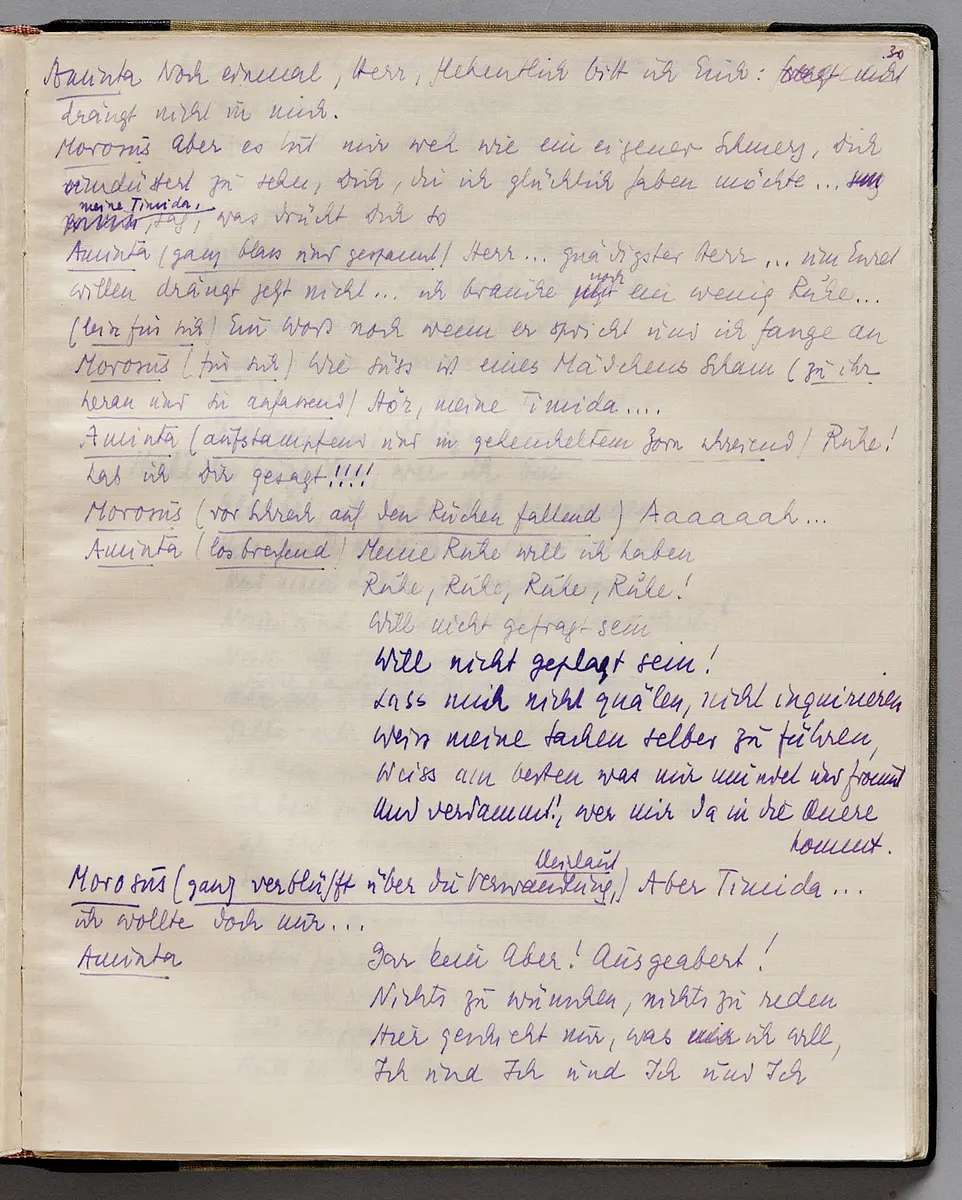 30
Aminta Noch einmal, Herr, flehentlich bitt ich Euch:
drängt nicht in mich.
Morosus Aber es tut mir weh wie ein eigener Schmerz, Dich
umdüstert zu sehen, Dich, die ich glücklich haben möchte...
meine Timida,
sag, was drückt Dich so
Aminta (ganz blass und gespannt) Herr... gnädigster Herr... um Euret
willen drängt jetzt nicht... ich brauche noch ein wenig Ruhe...
(leise für sich) Ein Wort noch wenn er spricht und ich fange an
Morosus (für sich) Wie süss ist eines Mädchens Scham (zu ihr
heran und sie anfassend) Hör, meine Timida....
Aminta (aufstampfend und in geheucheltem Zorn schreiend) Ruhe!
hab ich Dir gesagt!!!!
Morosus (vor Schreck auf den Rücken fallend) Aaaaaah...
Aminta (losbrechend) Meine Ruhe will ich haben
Ruhe, Ruhe, Ruhe, Ruhe!
Will nicht gefragt sein
Will nicht geplagt sein!
Lass mich nicht quälen, nicht inquirieren
Weiss meine Sachen selber zu führen,
Weiss am besten was mir mundet und frommt
Und verdammt!, wer mir da in die Quere
kommt.
kleinlaut
Morosus (ganz verblüfft über die Verwandlung,) Aber Timida...
ich wollte doch nur...
Aminta Gar kein Aber! Ausgeabert!
Nichts zu wünschen, nichts zu reden
Hier geschieht nur, was ich will,
Ich und Ich und Ich und Ich